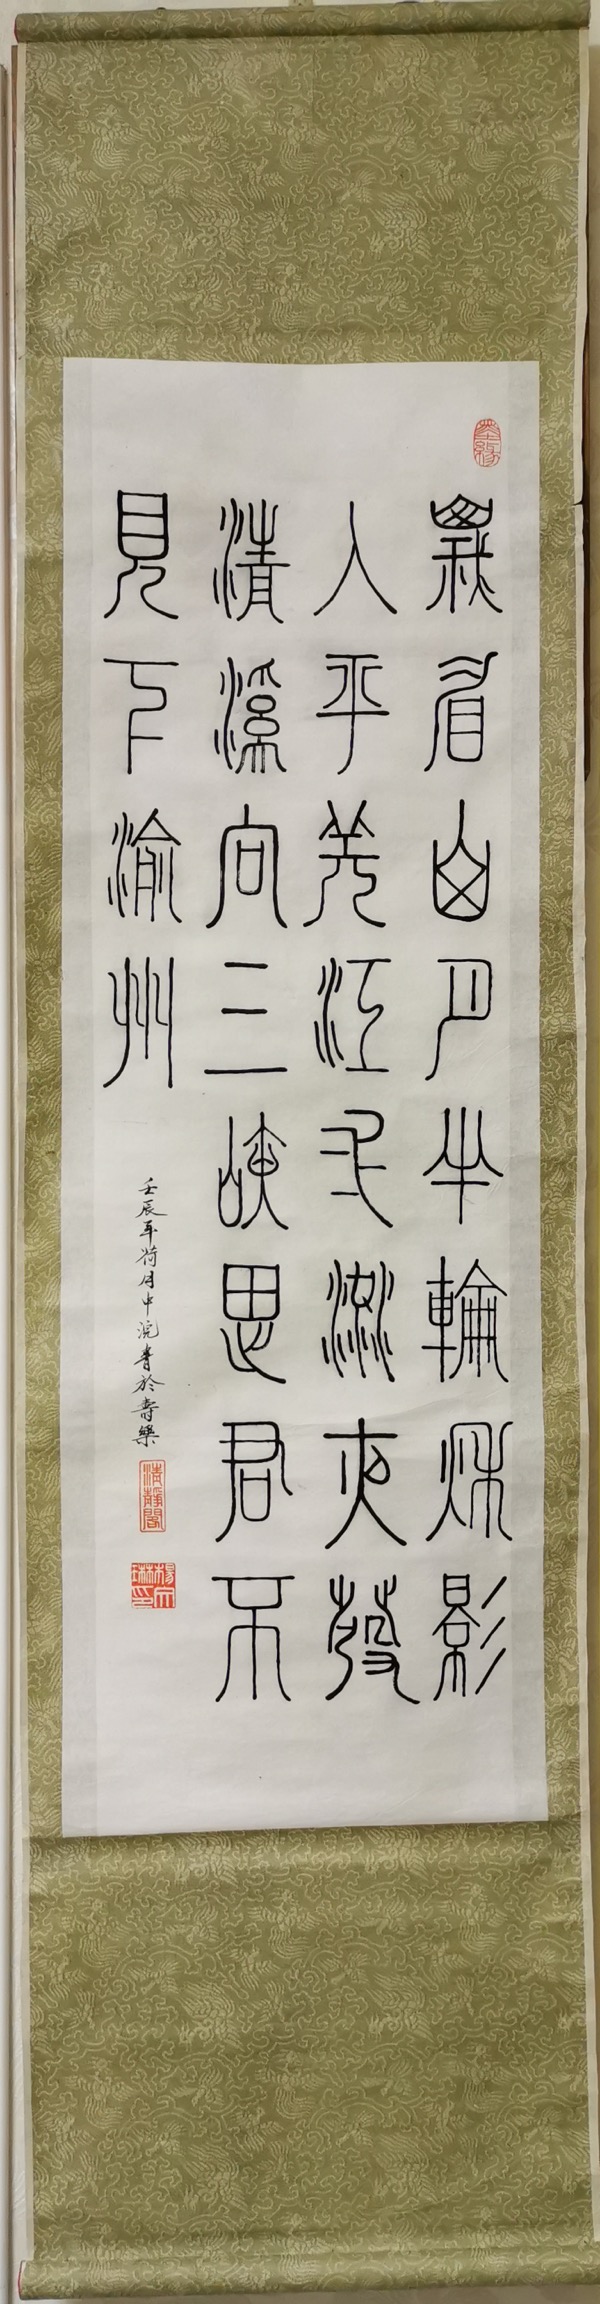 墨緣
峨眉山月半輪秋影
入平羌江水流夜發
清溪向三峽思君不
見下渝州
壬辰年荷月中浣書於壽樂
清靜閣